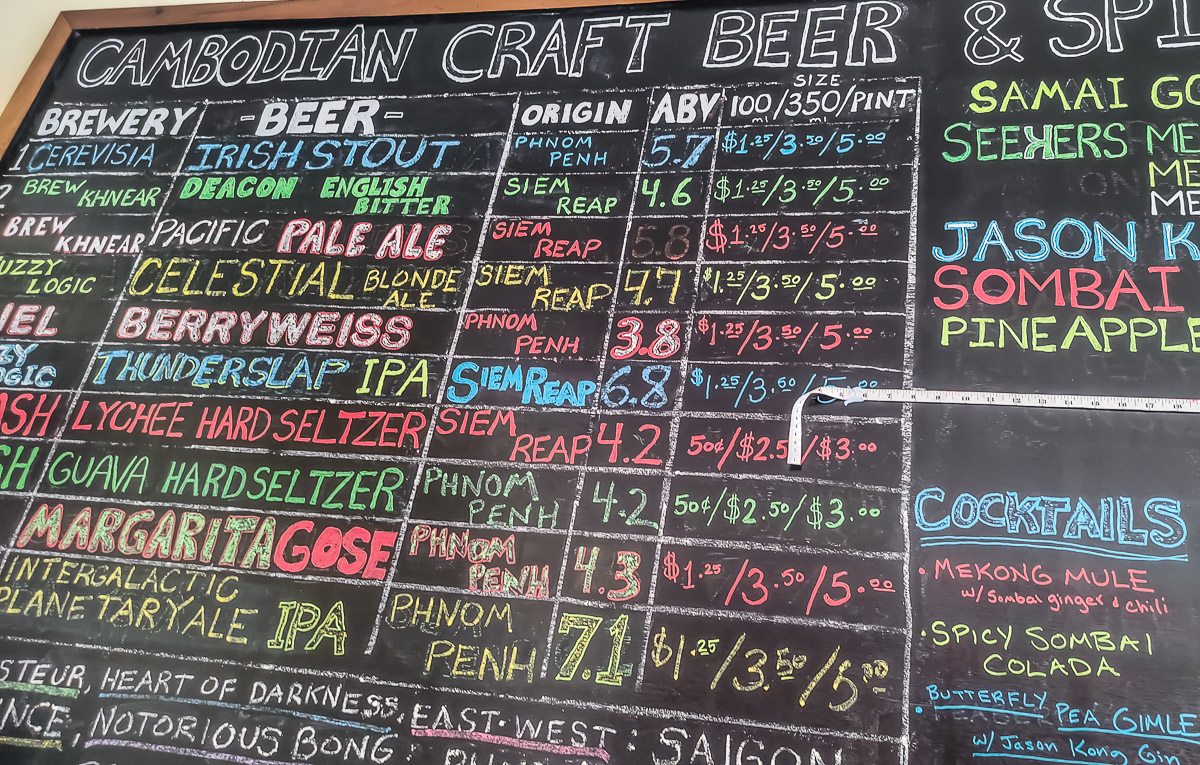 CAMBODIAN CRAFT BEER & SPI
BREWERY -BEER- ORIGIN ABV SIZE 100 ml/350 ml/PINT
1 CEREVISIA IRISH STOUT PHNOM PENH 5.7 $1.25/3.50/5.00
2 BREW KHNEAR DEACON ENGLISH BITTER SIEM REAP 4.6 $1.25/3.50/5.00
BREW KHNEAR PACIFIC PALE ALE SIEM REAP 5.8 $1.25/3.50/5.00
UZZY LOGIC CELESTIAL BLONDE ALE SIEM REAP 4.7 $1.25/3.50/5.00
IEL BERRYWEISS PHNOM PENH 3.8 $1.25/3.50/5.00
ZY OGIC THUNDERSLAP IPA SIEM REAP 6.8 $1.25/3.50/5.00
ASH LYCHEE HARD SELTZER SIEM REAP 4.2 50¢/$2.5 /$3.00
SH GUAVA HARD SELTZER PHNOM PENH 4.2 50¢/$2.50/$3.00
MARGARITA GOSE PHNOM PENH 4.3 $1.25/3.50/5.00
INTERGALACTIC PLANETARY ALE IPA PHNOM PENH 7.1 $1.25/3.50/5.00
STEUR, HEART OF DARKNESS, EAST·WEST: SAIGON
NCE, NOTORIOUS BONG:
SAMAI GO
SEEKERS ME
ON ME
ME
JASON K
SOMBAI
PINEAPPLE
COCKTAILS
• MEKONG MULE
w/ Sombai ginger & chili
• SPICY SOMBAI
COLADA
• BUTTERFLY PEA GIMLE
w/ Jason Kong Gin